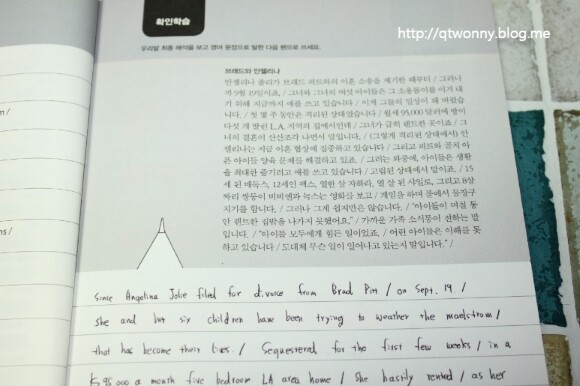 확인학습
http://qtwonny.blog.me
우리말 최종 해석을 보고 영어 문장으로 말한 다음 펜으로 쓰세요.
브래드와 안젤리나
안젤리나 졸리가 브래드 피트와의 이혼 소송을 제기한 때부터 / 그러니
까 9월 19일이죠, / 그녀와 그녀의 여섯 아이들은 그 소용돌이를 이겨 내
기 위해 지금까지 애를 쓰고 있습니다 / 이제 그들의 일상이 돼 버렸습
니다. / 첫 몇 주 동안은 격리된 상태였습니다 / 월세 95,000 달러에 방이
다섯 개 딸린 L.A. 지역의 집에서인데 / 그녀가 급히 렌트한 곳이죠 / 그
녀의 결혼이 산산조각 나면서 말입니다. / (그렇게 격리된 상태에서) 안
젤리나는 지금 이혼 협상에 집중하고 있습니다 / 그리고 피트와 골치 아
픈 아이들 양육 문제를 해결하고 있죠. / 그러는 와중에, 아이들은 생활
을 최대한 즐기려고 애를 쓰고 있습니다 / 고립된 상태에서 말이죠. / 15
세 된 매독스, 12세인 팩스, 열한 살 자하라, 열 살 된 샤일로, 그리고 8살
짜리 쌍둥이 비비엔과 녹스는 영화를 보고 / 게임을 하며 풀에서 물장구
치기를 합니다. / 그러나 그게 쉽지만은 않습니다. / "아이들이 며칠 동
안 렌트한 집밖을 나가지 못했어요." / 가까운 가족 소식통이 전하는 말
입니다. / "아이들 모두에게 힘든 일이었죠. / 어린 아이들은 이해를 못
하고 있습니다 / 도대체 무슨 일이 일어나고 있는지 말입니다." /
Since Angelina Jolie filed for divorce from Brad Pitt / on Sept. 19 /
she and her six children have been trying to weather the maelstrom /
that has become their lives. / Sequestered for the first few weeks / in a
$95,000 a month five bedroom LA area home / she hastily rented / as her